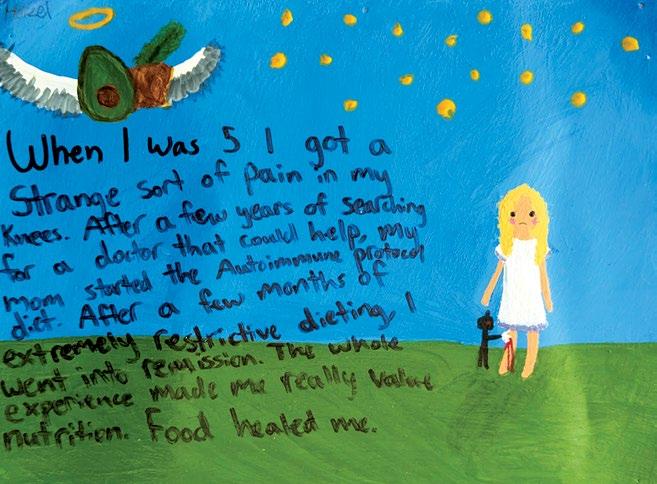 Hazel
When I was 5 I got a
Strange sort of pain in my
Knees. After a few years of searching
for a doctor that could help, my
mom started the Autoimmune protocol
diet. After a few months of
extremely restrictive dieting, I
went into remission. The whole
experience made me really value
nutrition. Food healed me.